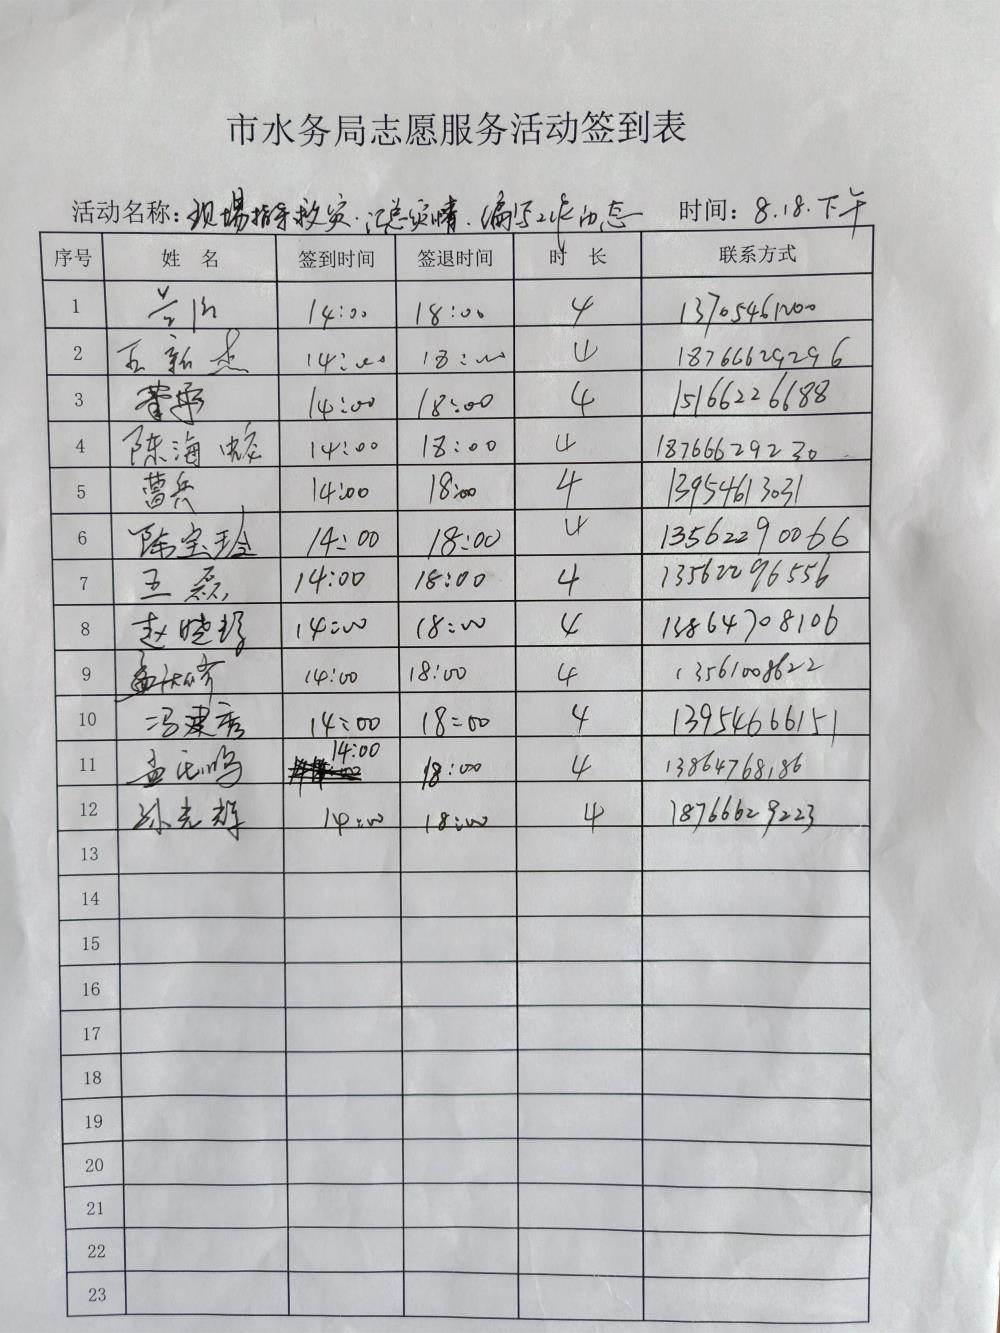 市水务局志愿服务活动签到表
活动名称：现场指导救灾、汇总灾情、编写工作动态 时间：8.18.下午
序号 姓 名 签到时间 签退时间 时 长 联系方式
1 兰 14:00 18:00 4 13705461200
2 王新杰 14:00 18:00 4 18766629296
3 14:00 18:00 4 15166226688
4 陈海蛟 14:00 18:00 4 18766629230
5 曹兵 14:00 18:00 4 13954613031
6 陈宝玲 14:00 18:00 4 13562290066
7 王磊 14:00 18:00 4 13562296556
8 赵晓 14:00 18:00 4 13864708106
9 孟 14:00 18:00 4 13561008622
10 冯建秀 14:00 18:00 4 13954666151
11 孟 鸣 14:00 18:00 4 13864768186
12 孙克辉 14:00 18:00 4 18766629223
13
14
15
16
17
18
19
20
21
22
23